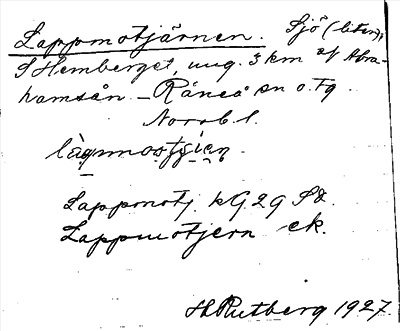 Lappmotjärnen. Sjö (liten),
S Hemberget, ung. 3 km af Abra-
hamsån – Råneå sn o. tg
Norrb. l.
Lappmotj. kG 29 Sd.
Lappmotjern ek.
H Rutberg 1927.